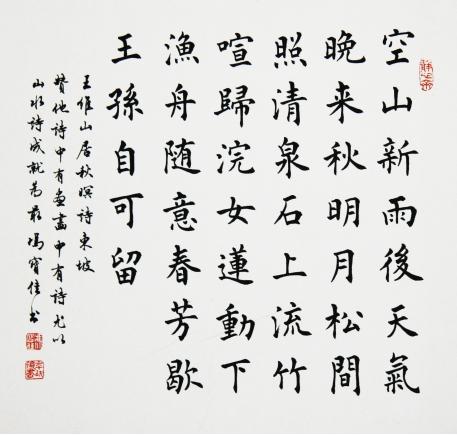 空山新雨後天氣
晚来秋明月松間
照清泉石上流竹
喧歸浣女蓮動下
漁舟随意春芳歇
王孫自可留
王维山居秋暝詩東坡
賛他詩中有畫畫中有詩尤以
山水詩成就為最馮寶佳书